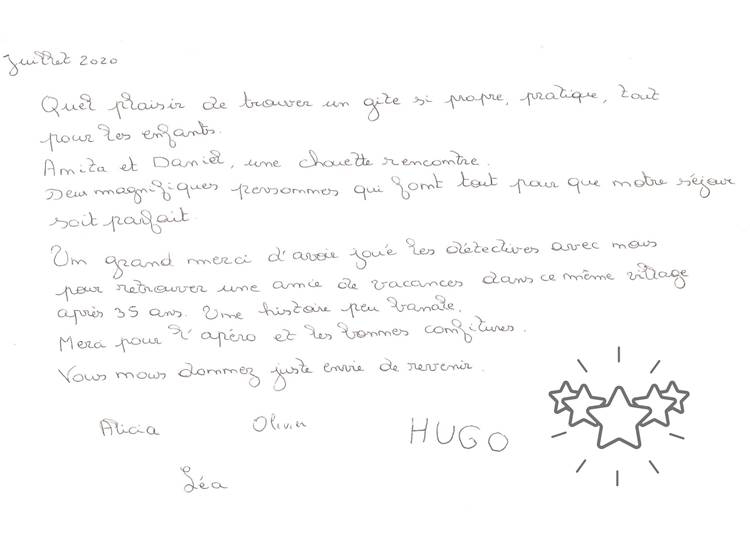 Juillet 2020
Quel plaisir de trouver un gite si propre, pratique, tout
pour les enfants.
Amita et Daniel, une chouette rencontre.
Deux magnifiques personnes qui font tout pour que notre séjour
soit parfait.
Un grand merci d'avoir joué les détectives avec nous
pour retrouver une amie de vacances dans ce même village
après 35 ans. Une histoire peu banale.
Merci pour l'apéro et les bonnes confitures.
Vous nous donnez juste envie de revenir.
Alicia Olivier HUGO
Léa